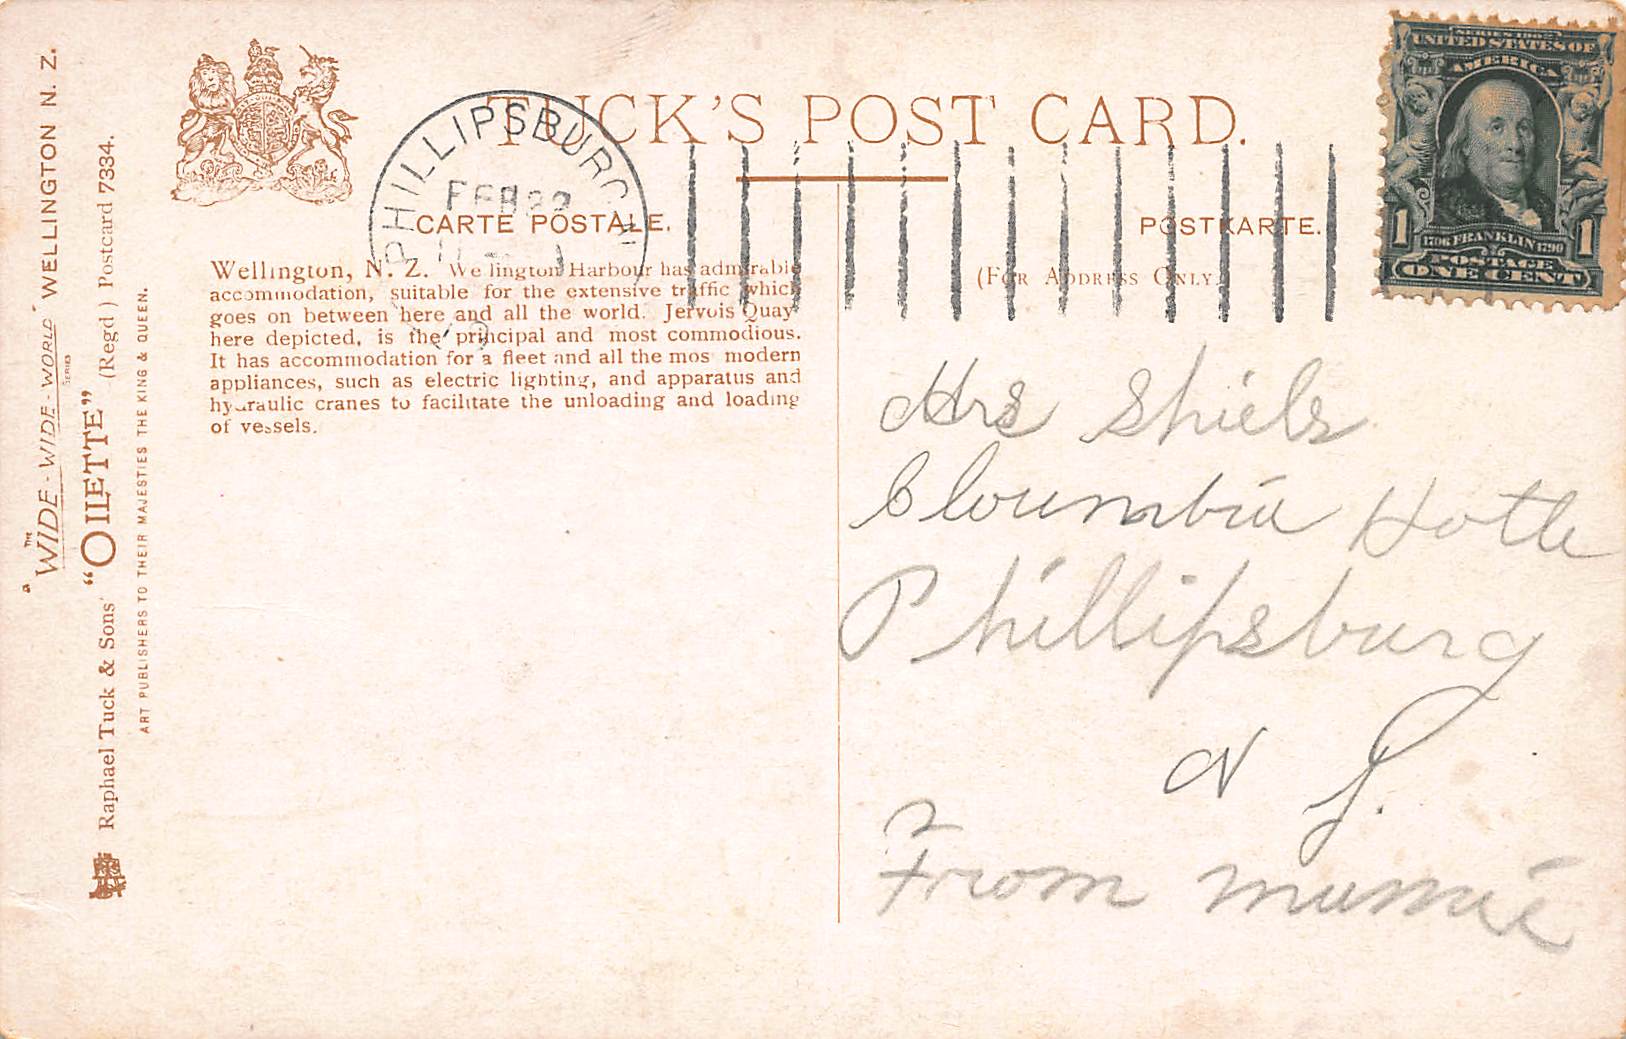 "THE WIDE-WIDE-WORLD" SERIES WELLINGTON N. Z.
Raphael Tuck & Sons' "OILETTE" (Regd) Postcard 7334.
ART PUBLISHERS TO THEIR MAJESTIES THE KING & QUEEN.
TUCK'S POST CARD.
CARTE POSTALE.
POSTKARTE.
(FOR ADDRESS ONLY.)
PHILLIPSBURG
FEB 22
Wellington, N. Z. Wellington Harbour has admirable
accommodation, suitable for the extensive traffic which
goes on between here and all the world. Jervois Quay
here depicted, is the principal and most commodious.
It has accommodation for a fleet and all the mos modern
appliances, such as electric lighting, and apparatus and
hydraulic cranes to facilitate the unloading and loading
of vessels.
SERIES 1902
UNITED STATES OF
AMERICA
1706 FRANKLIN 1790
1 POSTAGE 1
ONE CENT
Mrs Shiels
Cloumbia Hotle
Phillipsburg
N J.
From Mumie